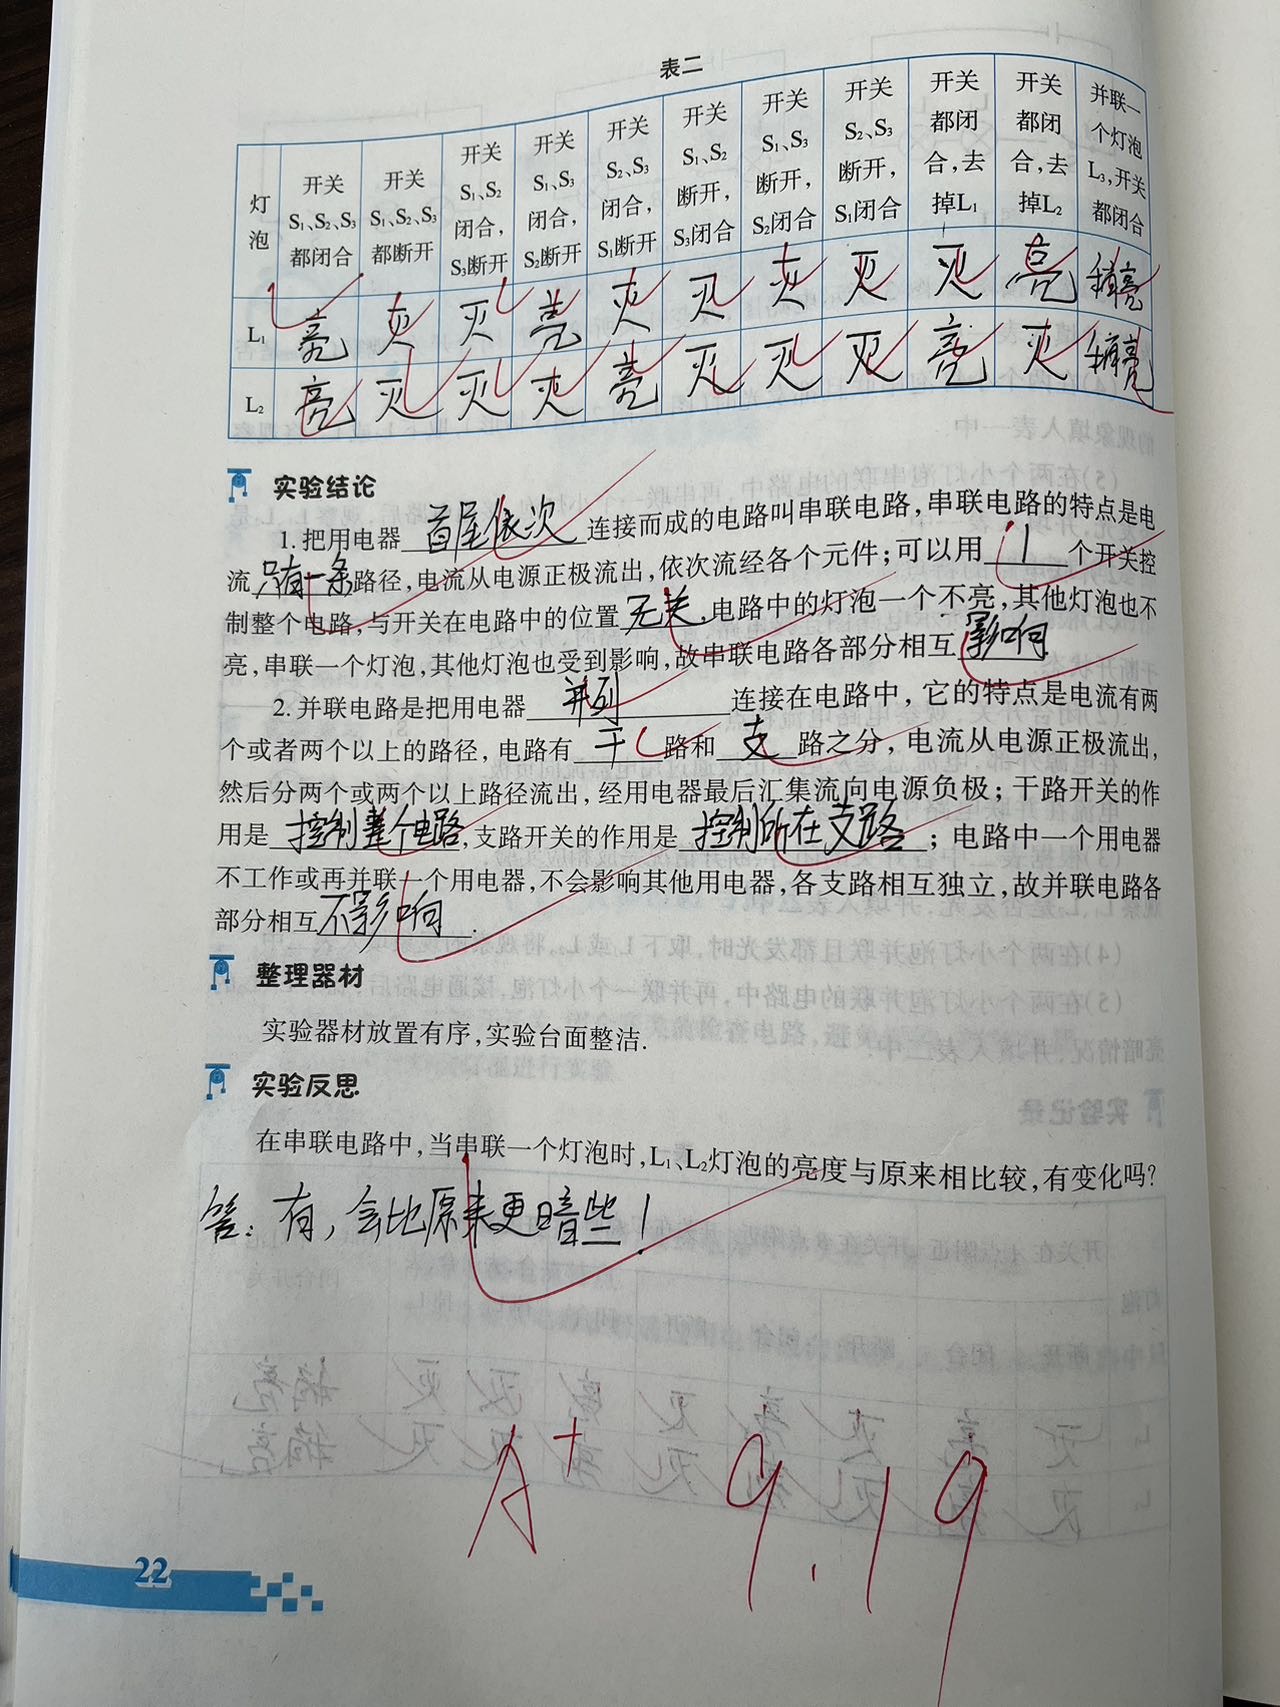 表二
灯泡 开关S₁、S₂、S₃都闭合 开关S₁、S₂、S₃都断开 开关S₁、S₂闭合,S₃断开 开关S₁、S₃闭合,S₂断开 开关S₂、S₃闭合,S₁断开 开关S₁、S₂断开,S₃闭合 开关S₁、S₃断开,S₂闭合 开关S₂、S₃断开,S₁闭合 开关都闭合,去掉L₁ 开关都闭合,去掉L₂ 并联一个灯泡L₃,开关都闭合
L₁ 亮 灭 灭 亮 灭 灭 灭 灭 灭 亮 稍亮
L₂ 亮 灭 灭 灭 亮 灭 灭 灭 亮 灭 稍亮
实验结论
1.把用电器首尾依次连接而成的电路叫串联电路,串联电路的特点是电
流只有一条路径,电流从电源正极流出,依次流经各个元件;可以用1个开关控
制整个电路,与开关在电路中的位置无关,电路中的灯泡一个不亮,其他灯泡也不
亮,串联一个灯泡,其他灯泡也受到影响,故串联电路各部分相互影响
2.并联电路是把用电器并列连接在电路中,它的特点是电流有两
个或者两个以上的路径,电路有干路和支路之分,电流从电源正极流出,
然后分两个或两个以上路径流出,经用电器最后汇集流向电源负极;干路开关的作
用是控制整个电路,支路开关的作用是控制所在支路;电路中一个用电器
不工作或再并联一个用电器,不会影响其他用电器,各支路相互独立,故并联电路各
部分相互不影响.
整理器材
实验器材放置有序,实验台面整洁.
实验反思
在串联电路中,当串联一个灯泡时,L₁、L₂灯泡的亮度与原来相比较,有变化吗?
答:有,会比原来更暗些!
A+ 9.19
22